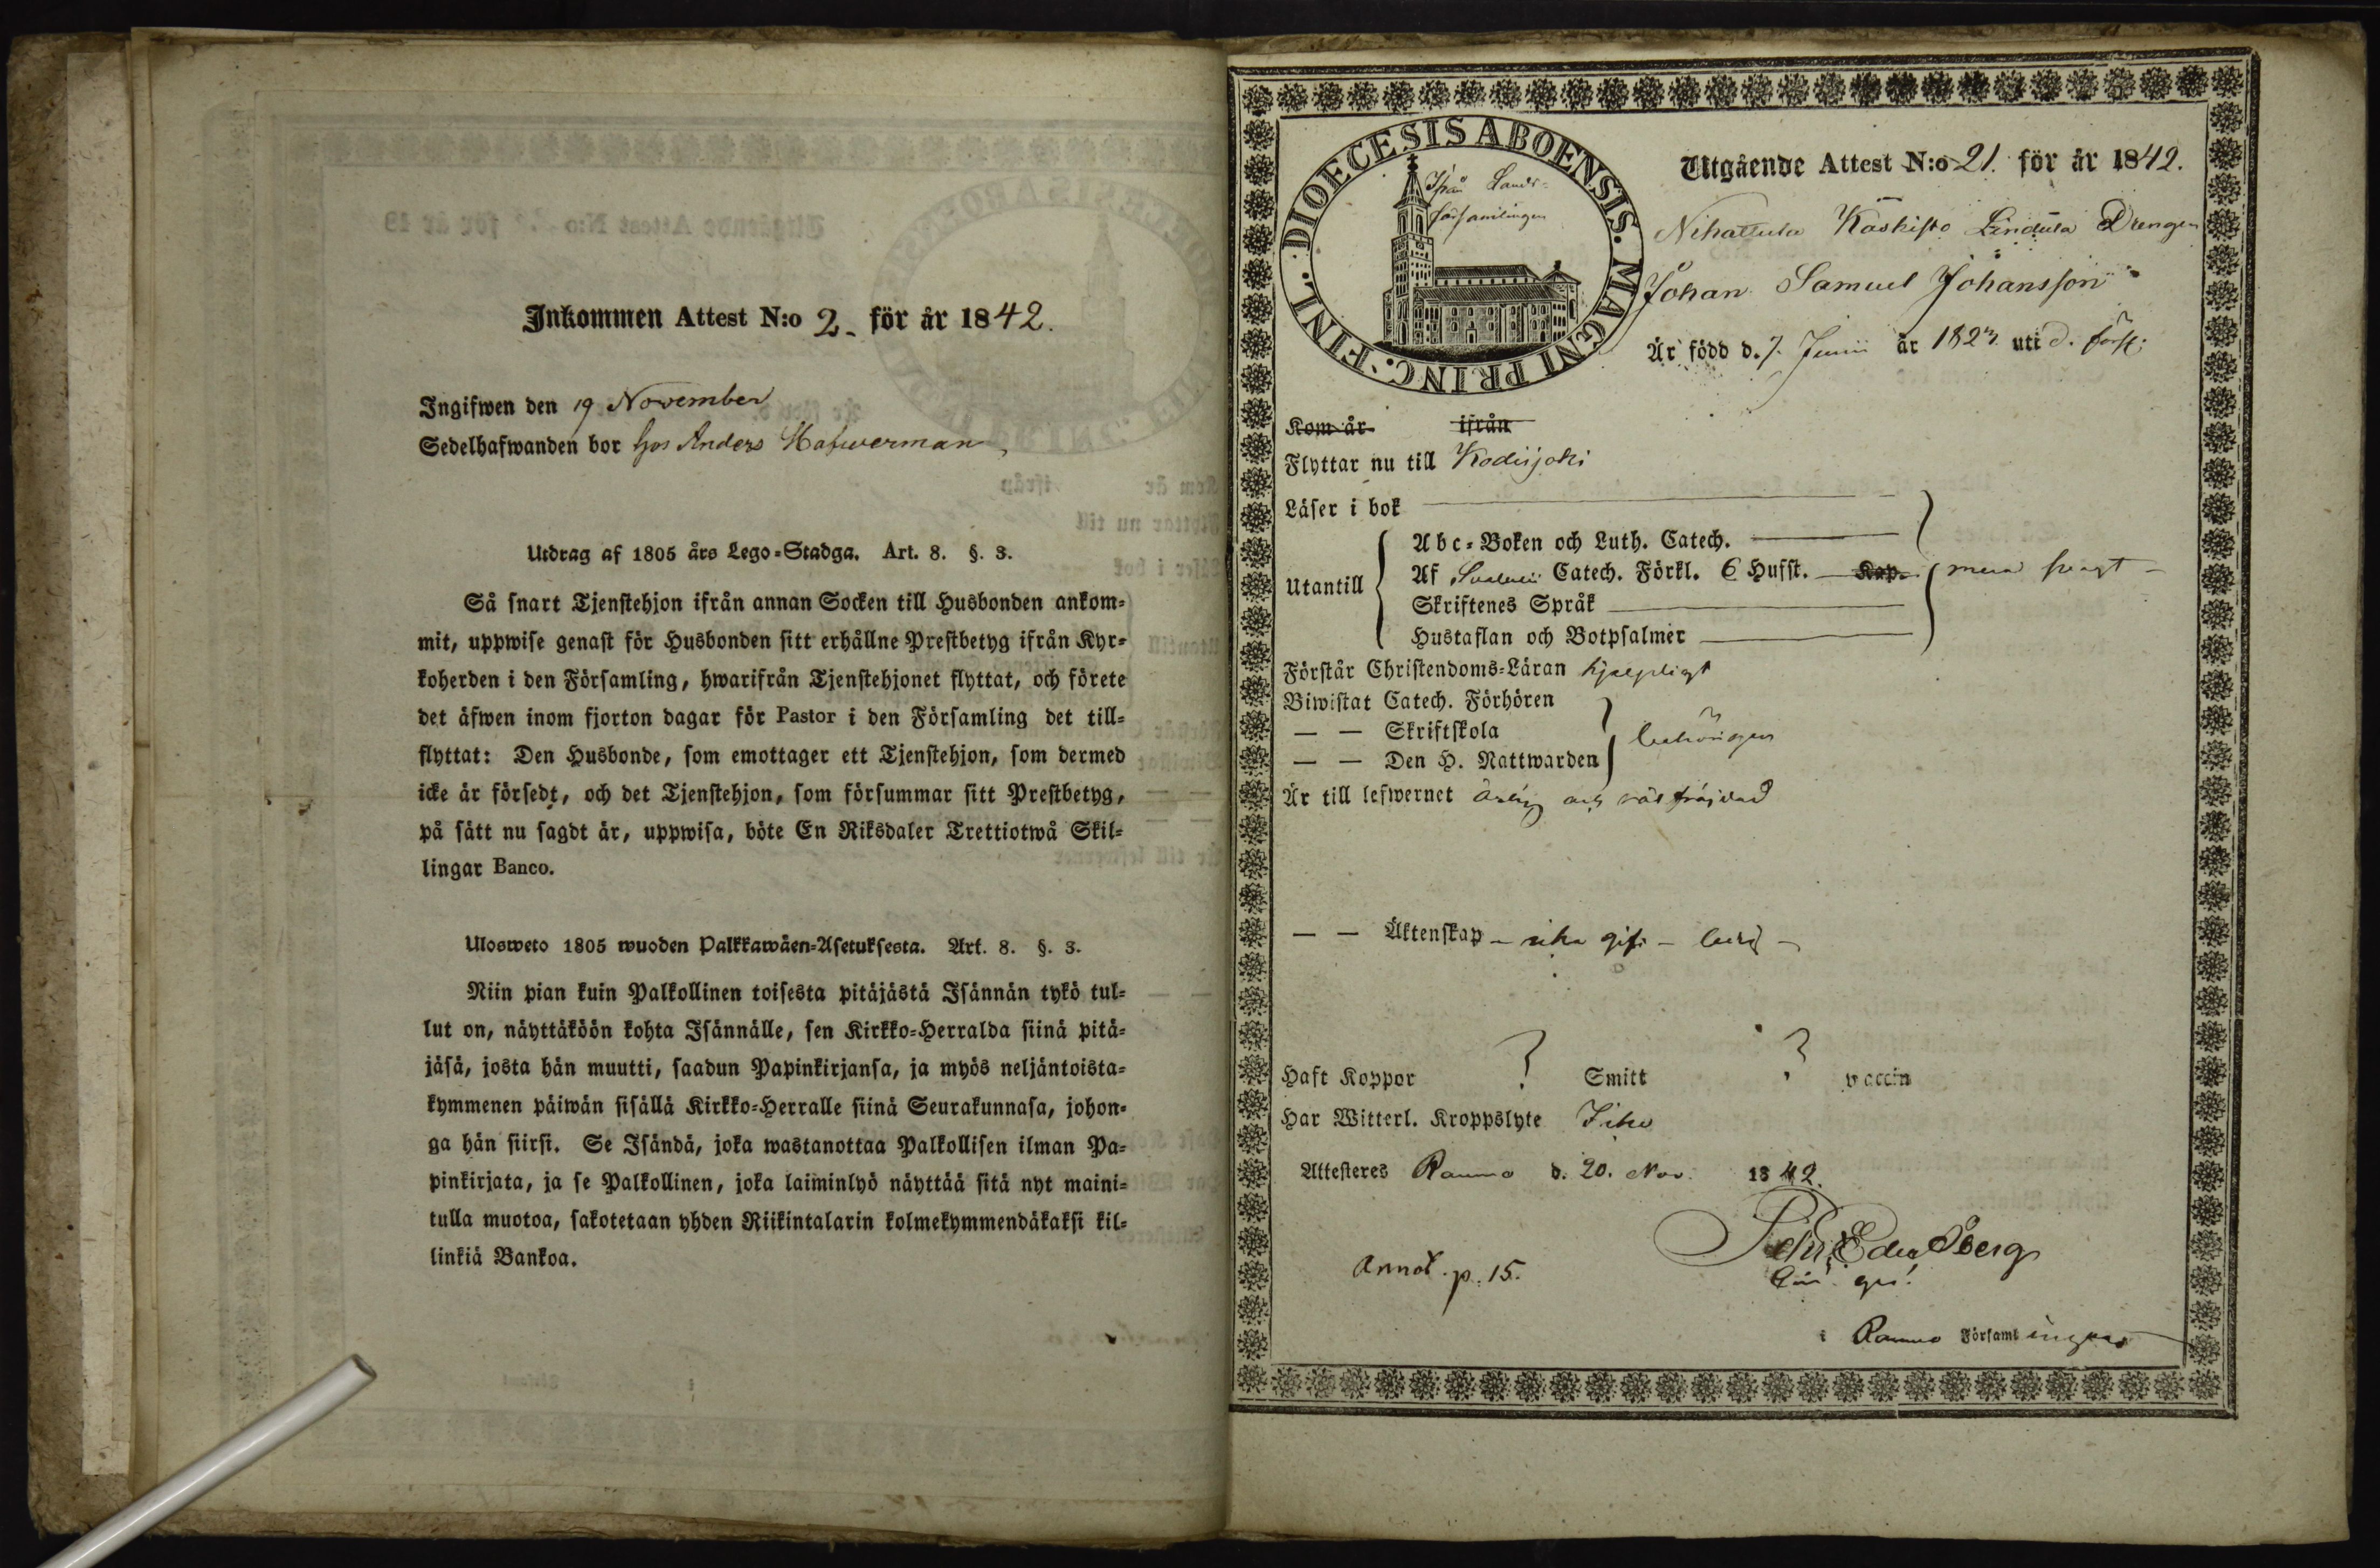 Inkommen Attest N:o 2. för år 1842.
Ingifwen den 19 November
Sedelhafwanden bor hos Anders Hafwerman
Utdrag af 1805 års Lego-Stadga. Art. 8. §. 3.
Så snart Tjenstehjon ifrån annan Socken till Husbonden ankom-
mit, uppwise genast för Husbonden sitt erhållne Prestbetyg ifrån Kyr-
koherden i den Församling, hwarifrån Tjenstehjonet flyttat, och förete
det äfwen inom fjorton dagar för Pastor i den Församling det till-
flyttat: Den Husbonde, som emottager ett Tjenstehjon, som dermed
icke är försedt, och det Tjenstehjon, som försummar sitt Prestbetyg,
på sätt nu sagdt är, uppwisa, böte En Riksdaler Trettiotwå Skil-
lingar Banco.
Ulosweto 1805 wuoden Palkkawäen-Asetuksesta. Art. 8. §. 3.
Niin pian kuin Palkollinen toisesta pitäjästä Isännän tykö tul-
lut on, näyttäköön kohta Isännälle, sen Kirkko-Herralda siinä pitä-
jäsä, josta hän muutti, saadun Papinkirjansa, ja myös neljäntoista-
kymmenen päiwän sisällä Kirkko-Herralle siinä Seurakunnasa, johon-
ga hän siirsi. Se Isändä, joka wastanottaa Palkollisen ilman Pa-
pinkirjata, ja se Palkollinen, joka laiminlyö näyttää sitä nyt maini-
tulla muotoa, sakotetaan yhden Riikintalarin kolmekymmendäkaksi kil-
linkiä Bankoa.
DIOECESIS ABOENSIS. MAGNI PRINC. FINL.
Ifrån Lands-
församlingen
Utgående Attest N:o 21. för år 1842.
Nihattula Käskisto Lindula Drengen
Johan Samuel Johansson
Är född d. 7. Junii år 1823 uti d. förs:
Kom år ifrån
Flyttar nu till Kodisjoki
Läser i bok
Utantill
Abc-Boken och Luth. Catech.
Af Svebelii Catech. Förkl. 6 Husst. Kap.
Skriftenes Språk
Hustaflan och Botpsalmer
mera svagt
Förstår Christendoms-Läran hjelpligt
Biwistat Catech. Förhören
— — Skriftskola
— — Den H. Nattwarden
behörigen
Är till lefwernet ärlig och väl fräjdad
— — Äktenskap - icke gift - ledig -
Haft Koppor ? Smitt ? vaccin
Har Witterl. Kroppslyte Icke
Attesteres Raumo d. 20. Nov. 1842.
Annot. p. 15.
i Raumo Församlingar